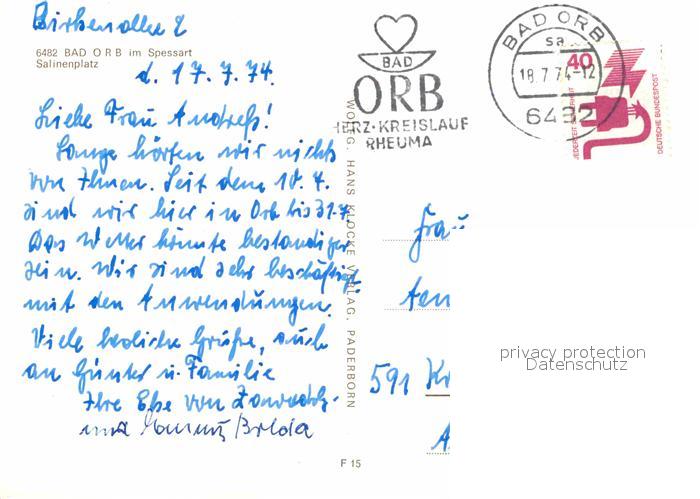 Birkenallee 2
6482 BAD ORB im Spessart
Salinenplatz
d. 17. 7. 74.
Liebe Frau Andreß!
Lange hörten wir nichts
von Ihnen. Seit dem 10. 7.
sind wir hier in Orb bis 31.7.
Das Wetter könnte bestandiger
sein. Wir sind sehr beschäftigt
mit den Anwendungen.
Viele herzliche Grüße, auch
an Günter u. Familie
Ihre Else von
und
BAD
ORB
HERZ·KREISLAUF
RHEUMA
BAD ORB
sa
18.7.74-12
6482
40
JEDERZEIT SICHERHEIT
DEUTSCHE BUNDESPOST
WOLFG. HANS KLOCKE VERLAG, PADERBORN
Frau
591 Kr
privacy protection
Datenschutz
F 15